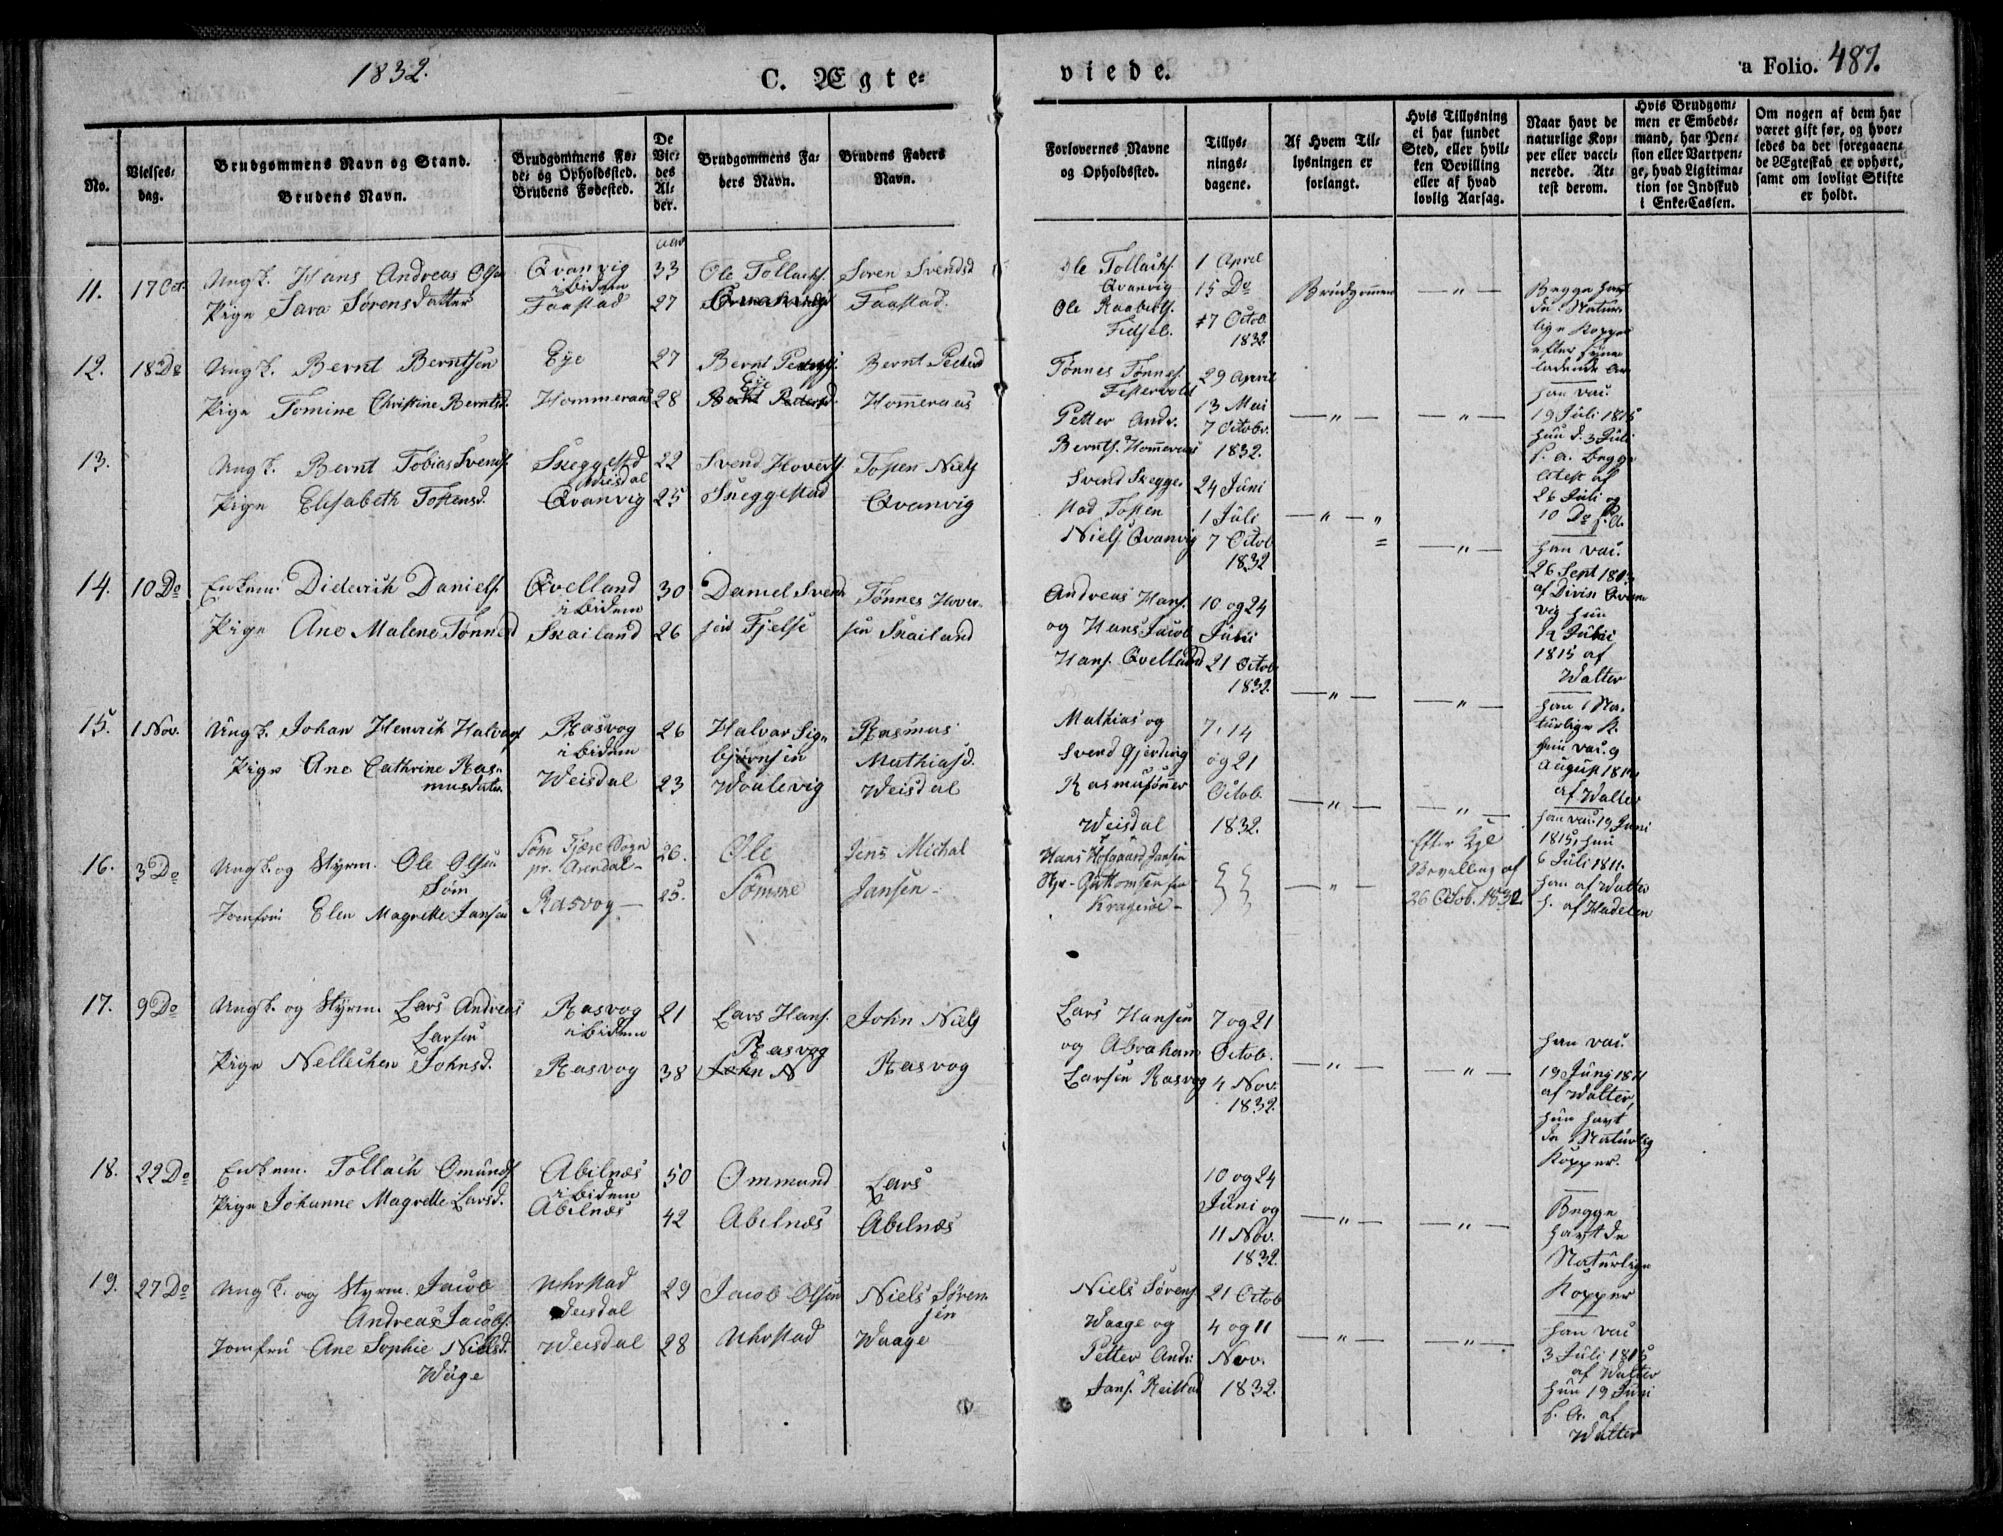 1832.
C. Ægte-
viede.
a Folio. 487.
No.
Vielses-
dag.
Brudgommens Navn og Stand.
Brudens Navn.
Brudgommens Fø-
de- og Opholdssted.
Brudens Fødested.
De
Vie-
des
Al-
der.
Brudgommens Fa-
ders Navn.
Brudens Faders
Navn.
Forlovernes Navne
og Opholdssted.
Tillys-
nings-
dagene.
Af Hvem Til-
lysningen er
forlangt.
Hvis Tillysning
ei har fundet
Sted, eller hvil-
ken Bevilling
eller af hvad
lovlig Aarsag.
Naar havt de
naturlige Kop-
per eller vacci-
nerede. At-
test derom.
Hvis Brudgom-
men er Embeds-
mand, har Pen-
sion eller Vartpen-
ge, hvad Ligitima-
tion for Indskud
i Enke-Cassen.
Om nogen af dem har
været gift før, og hvor-
ledes da det foregaaen-
de Ægteskab er ophørt,
samt om lovligt Skifte
er holdt.
11. 17 Oct. Ungk. Hans Andreas Olsen
Pige Sara Sørensdatter
Qvanvig
ibidem
Faastad
Aar
33
27
Ole Tollachs.
Qvanvig
Søren Svends
Faastad.
Ole Tollachs.
Qvanvig
Ole Raaberts.
Fidsel.
1 April
15 Do
7 Octob.
1832.
Brudgommen
— " —
Begge havt
de Natur-
lige Kopper
efter syne-
ladende Ar
12. 18 Do Ungk. Bernt Berntsen
Pige Tomine Christine Berntsd.
Eje
Hommeraas
27
28
Bernt Peders.
Eje
Bernt Pedersd.
Bernt Peders
Hommeraas
Tønnes Tønnes.
Festervold
Petter Andr.
Bernts. Hommeraas
29 April
13 Mai
7 Octobr.
1832.
— " —
— " —
han vac.
19 Juli 1815
hun d. 3 Juli
s. a. begge
Atest af
26 Juli og
10 Do s. A.
13. Ungk. Bernt Tobias Svends.
Pige Elisabeth Tostensd.
Skeggestad
Qvanvig
22
25
Svend Hoverts.
Skeggestad
Tosten Niels
Qvanvig
Svend Skegge-
stad Tosten
Niels Qvanvig
24 Juni
1 Juli
7 Octob
1832
— " — "
— " —
han vac.
26 Sept 1813
hun
1815 af
Walter
14. 10 Do Enkem. Diderich Daniels.
Pige Ane Malene Tønnesd
Qvelland
ibidem
Skailand
30
26
Daniel Svend
sen Fjelse
Tønnes Hover-
sen Skailand
Andreas Hans.
og Hans Jacob
Hans. Qvelland
10 og 24
Juni
21 Octob
1832.
— " —
— " —
han Na-
turlige K.
hun vac. 9
August
af Walter
15. 1 Nov. Ungk. Johan Henrich Halvors
Pige Ane Cathrine Ras-
musdatter
Rasvog
ibidem
Weisdal
26
23
Halvor Sig-
bjørnsen
Woulevig
Rasmus
Mathiasd.
Weisdal
Mathias og
Svend Gjerding
Rasmusønner
Weisdal
7, 14
og 21
Octob.
1832.
— " —
— " —
han vac. 19 Juni
1815, hun
6 Juli 1811.
han af Walter
h. af Hadelen
16. 3 Do Ungk. og Styrm. Ole Olsen
Søm
Jomfru Elen Magrette Jansen
Søm Fjære Sogn
pr. Arendal —
Rasvog —
26.
25.
Ole
Sømme
Jens Michal
Jansen —
Hans Hofgaard Jansen
Hr. Guttomsen fra
Kragerøe —
— " —
Efter Kgl
Bevilling af
26 Octob. 1832
17. 9 Do Ungk. og Styrm. Lars Andreas
Larsen
Pige Nellechen Johnsd.
Rasvog
ibidem
Rasvog
21
38
Lars Hans.
Rasvog
John N
John Niels
Rasvog
Lars Hansen
og Abraham
Larsen Rasvog
7 og 21
Octob.
4 Nov.
1832.
— " —
— " —
han vac.
19 Juny 1811
af Walter,
hun havt
de Naturlig
Kopper.
18. 22 Do Enkem. Tollach Omunds.
Pige Johanne Magrette Larsd.
Abelnæs
ibidem
Abelnæs
50
42
Ommund
Abelnæs
Lars
Abelnæs
10 og 24
Juni og
11 Nov.
1832.
— " —
— " —
Begge
havt de
Naturlige
Kopper
19. 27 Do Ungk. og Styrm. Jacob
Andreas Jacobs.
Jomfru Ane Sophie Nielsd.
Wage
Uhrstad
Weisdal
Weisdal
29
28
Jacob Olsen
Uhrstad
Niels Søren-
sen
Waage
Niels Sørens.
Waage og
Petter Andr:
Jans. Reistad
21 Octob
4 og 11
Nov.
1832.
— " —
— " —
han vac
3 Juli 1815
af Walter
hun 19 Juni
s. A. af
Walter